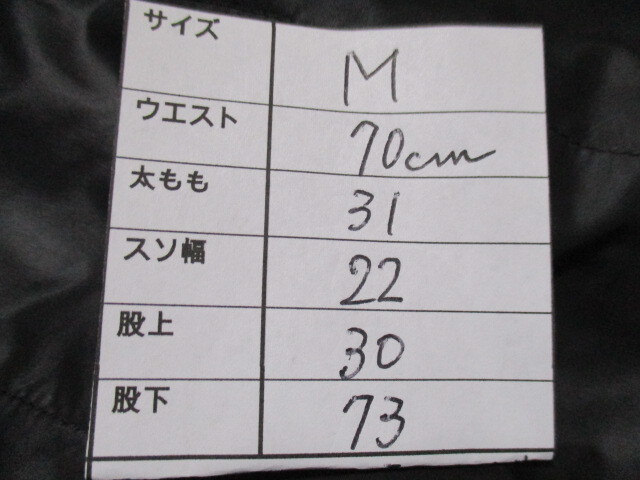 サイズ M
ウエスト 70cm
太もも 31
スソ幅 22
股上 30
股下 73